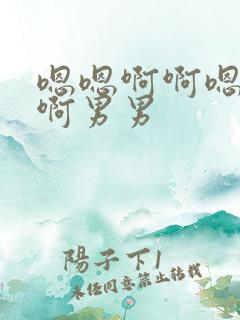 嗯嗯啊啊嗯
啊男男
陽子下1
未经同意禁止转载